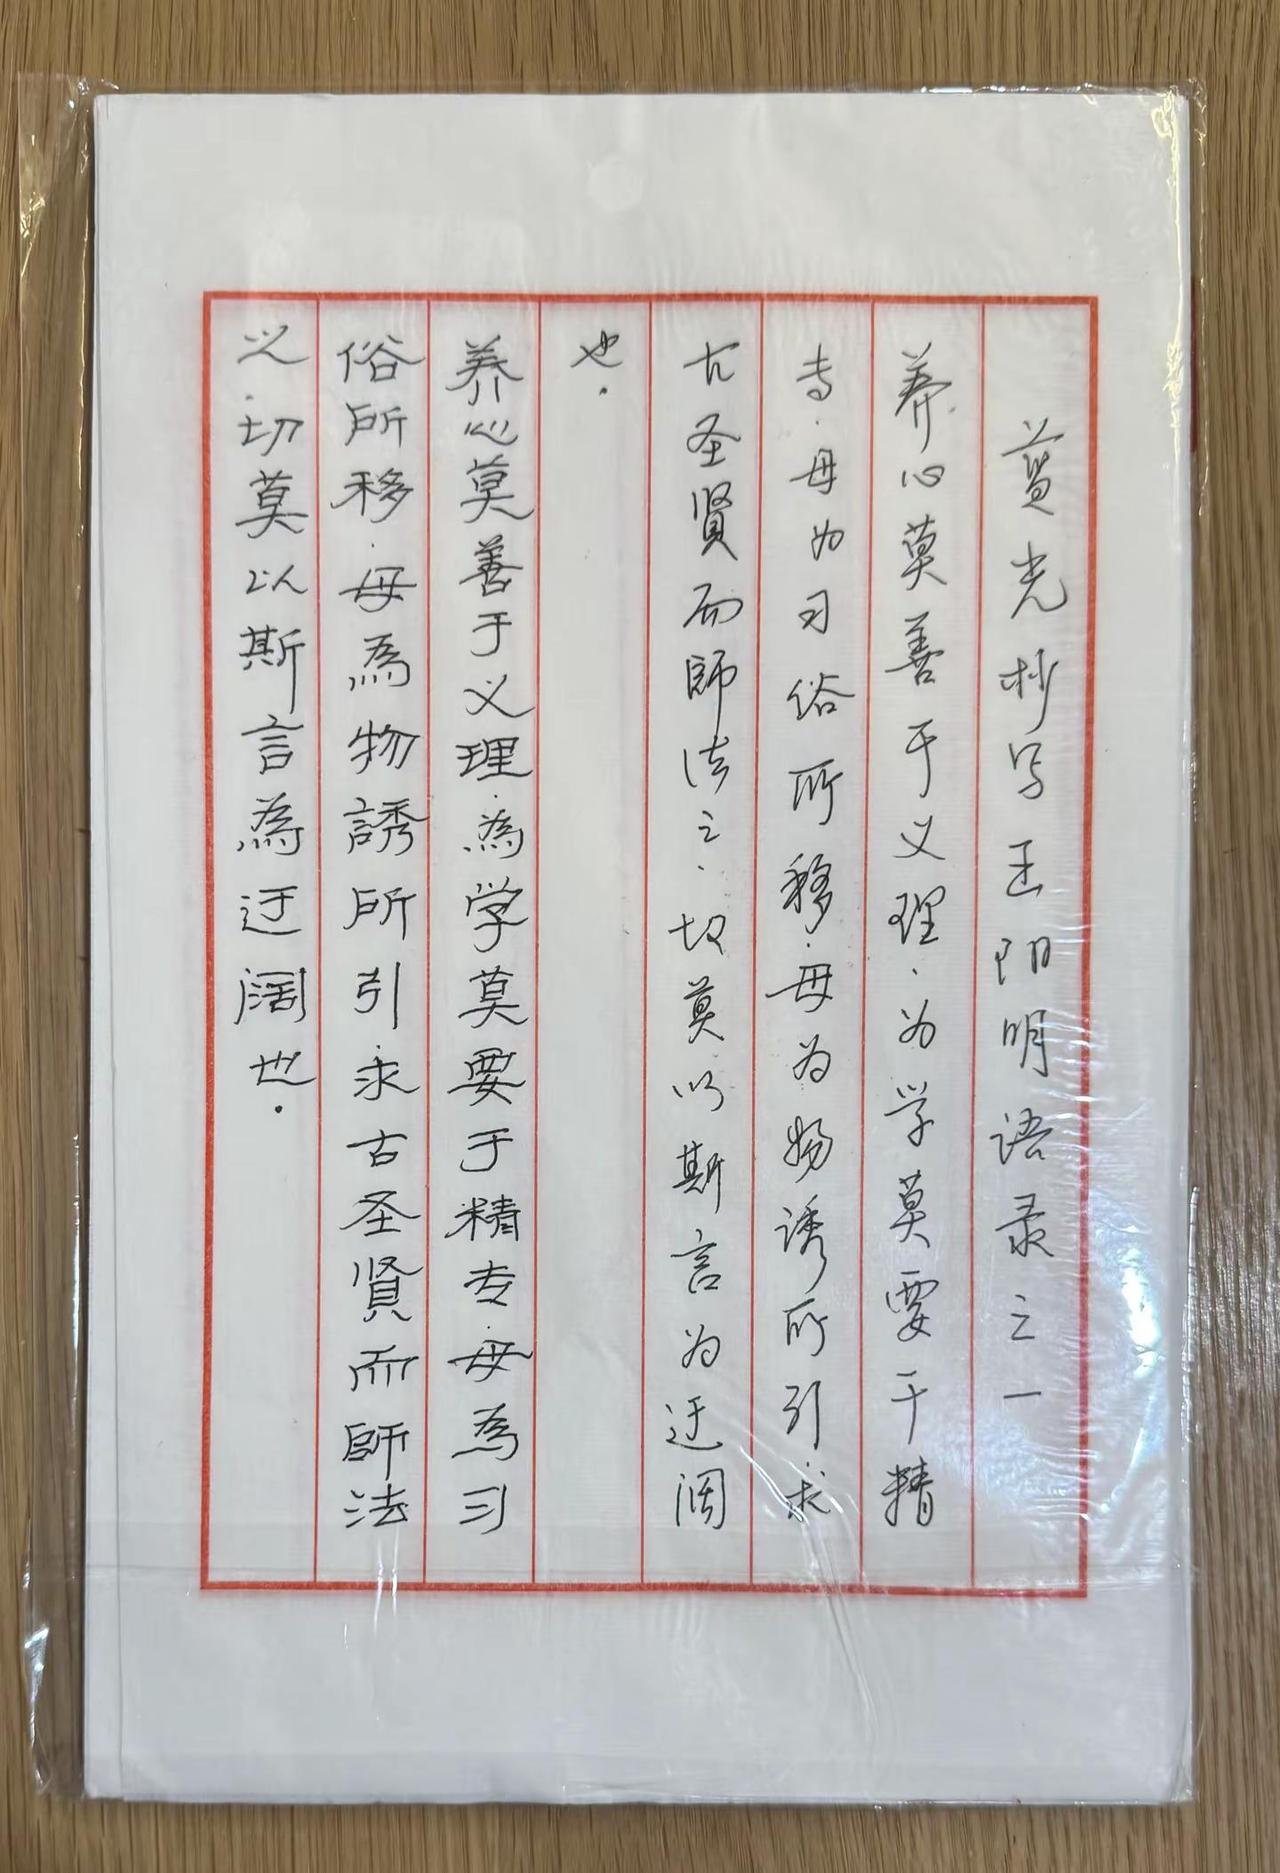 莫光抄写王阳明语录之一
养心莫善于义理、为学莫要于精
专.毋为习俗所移.毋为物诱所引求
古圣贤而師法之、切莫以斯言为迂阔
也.
养心莫善于义理.為学莫要于精专.毋為习
俗所移.毋為物誘所引求古圣贤而師法
之.切莫以斯言為迂阔也.